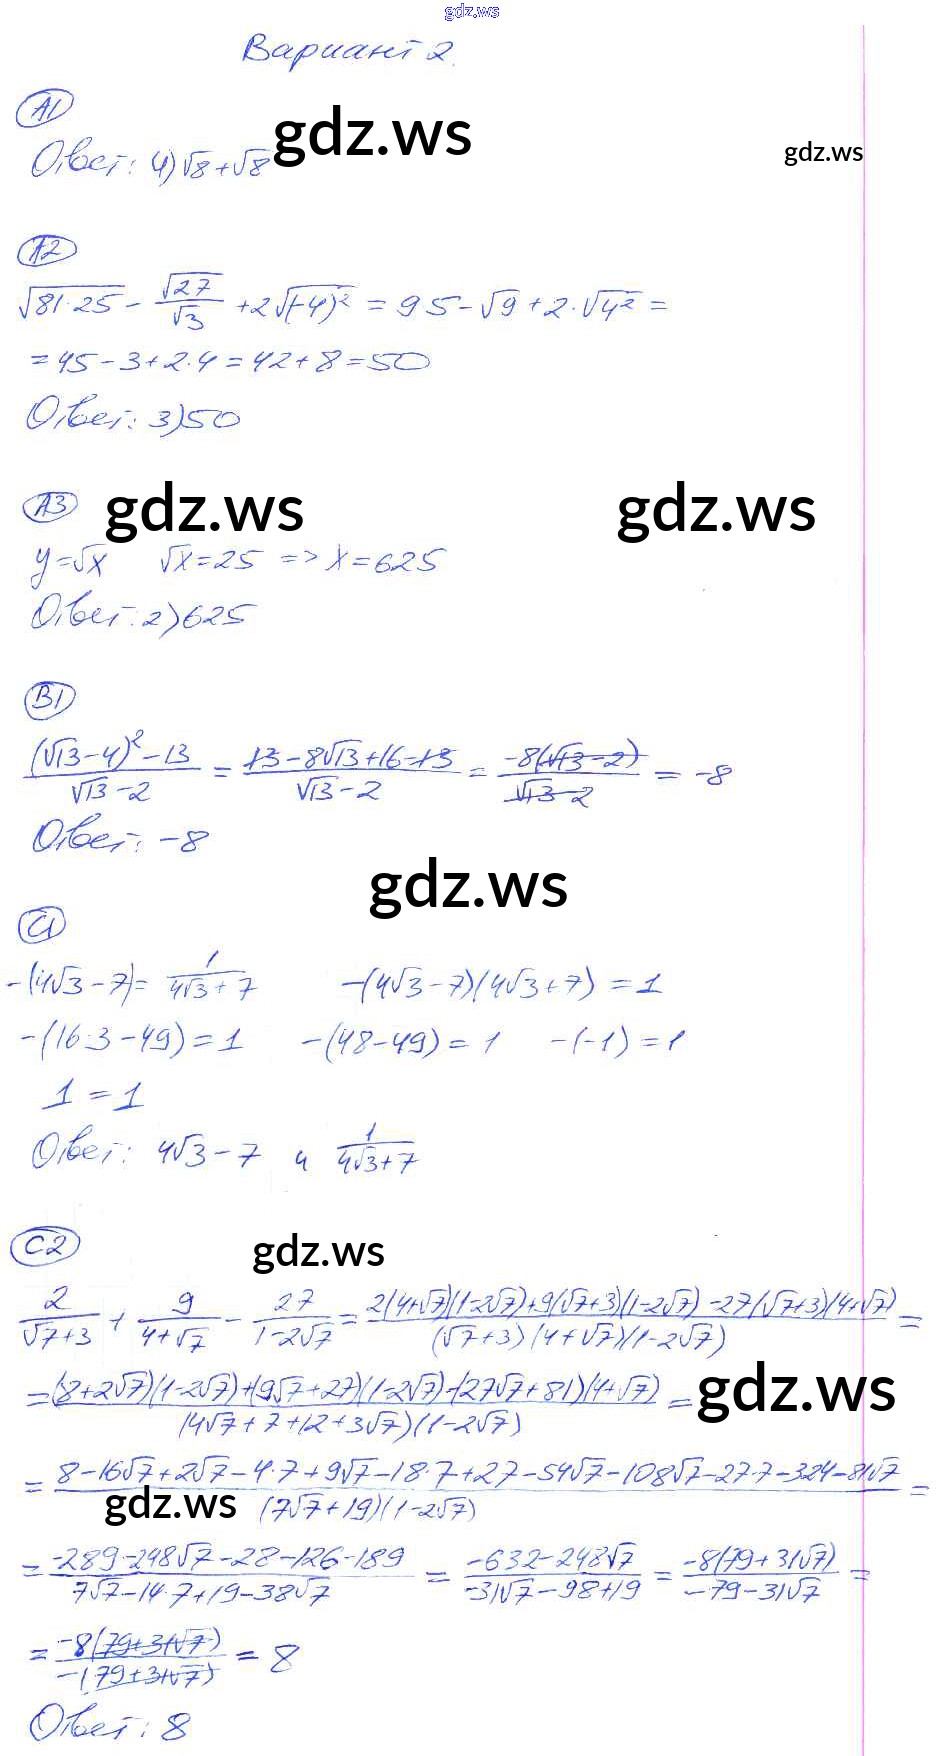 gdz.ws
Вариант 2.
А1
Ответ: 4) √8 + √8
gdz.ws
gdz.ws
А2
√(81·25) - √27/√3 + 2√(-4)² = 9 5 - √9 + 2·√4² =
= 45 - 3 + 2·4 = 42 + 8 = 50
Ответ: 3) 50
А3
gdz.ws
gdz.ws
y = √x √x = 25 => x = 625
Ответ: 2) 625
В1
((√13 - 4)² - 13)/(√13 - 2) = (13 - 8√13 + 16 - 13)/(√13 - 2) = (-8(√13 - 2))/(√13 - 2) = -8
Ответ: -8
gdz.ws
С1
-(4√3 - 7) = 1/(4√3 + 7) -(4√3 - 7)(4√3 + 7) = 1
-(16·3 - 49) = 1 -(48 - 49) = 1 -(-1) = 1
1 = 1
Ответ: 4√3 - 7 и 1/(4√3 + 7)
С2
gdz.ws
2/(√7 + 3) + 9/(4 + √7) - 27/(1 - 2√7) = (2(4+√7)(1-2√7)+9(√7+3)(1-2√7)-27(√7+3)(4+√7))/((√7+3)(4+√7)(1-2√7)) =
= ((8+2√7)(1-2√7)+(9√7+27)(1-2√7)-(27√7+81)(4+√7))/((4√7+7+12+3√7)(1-2√7)) =
gdz.ws
= (8-16√7+2√7-4·7+9√7-18·7+27-54√7-108√7-27·7-324-81√7)/((7√7+19)(1-2√7)) =
gdz.ws
= (-289-248√7-28-126-189)/(7√7-14·7+19-38√7) = (-632-248√7)/(-31√7-98+19) = (-8(79+31√7))/(-79-31√7) =
= (-8(79+31√7))/(-(79+31√7)) = 8
Ответ: 8